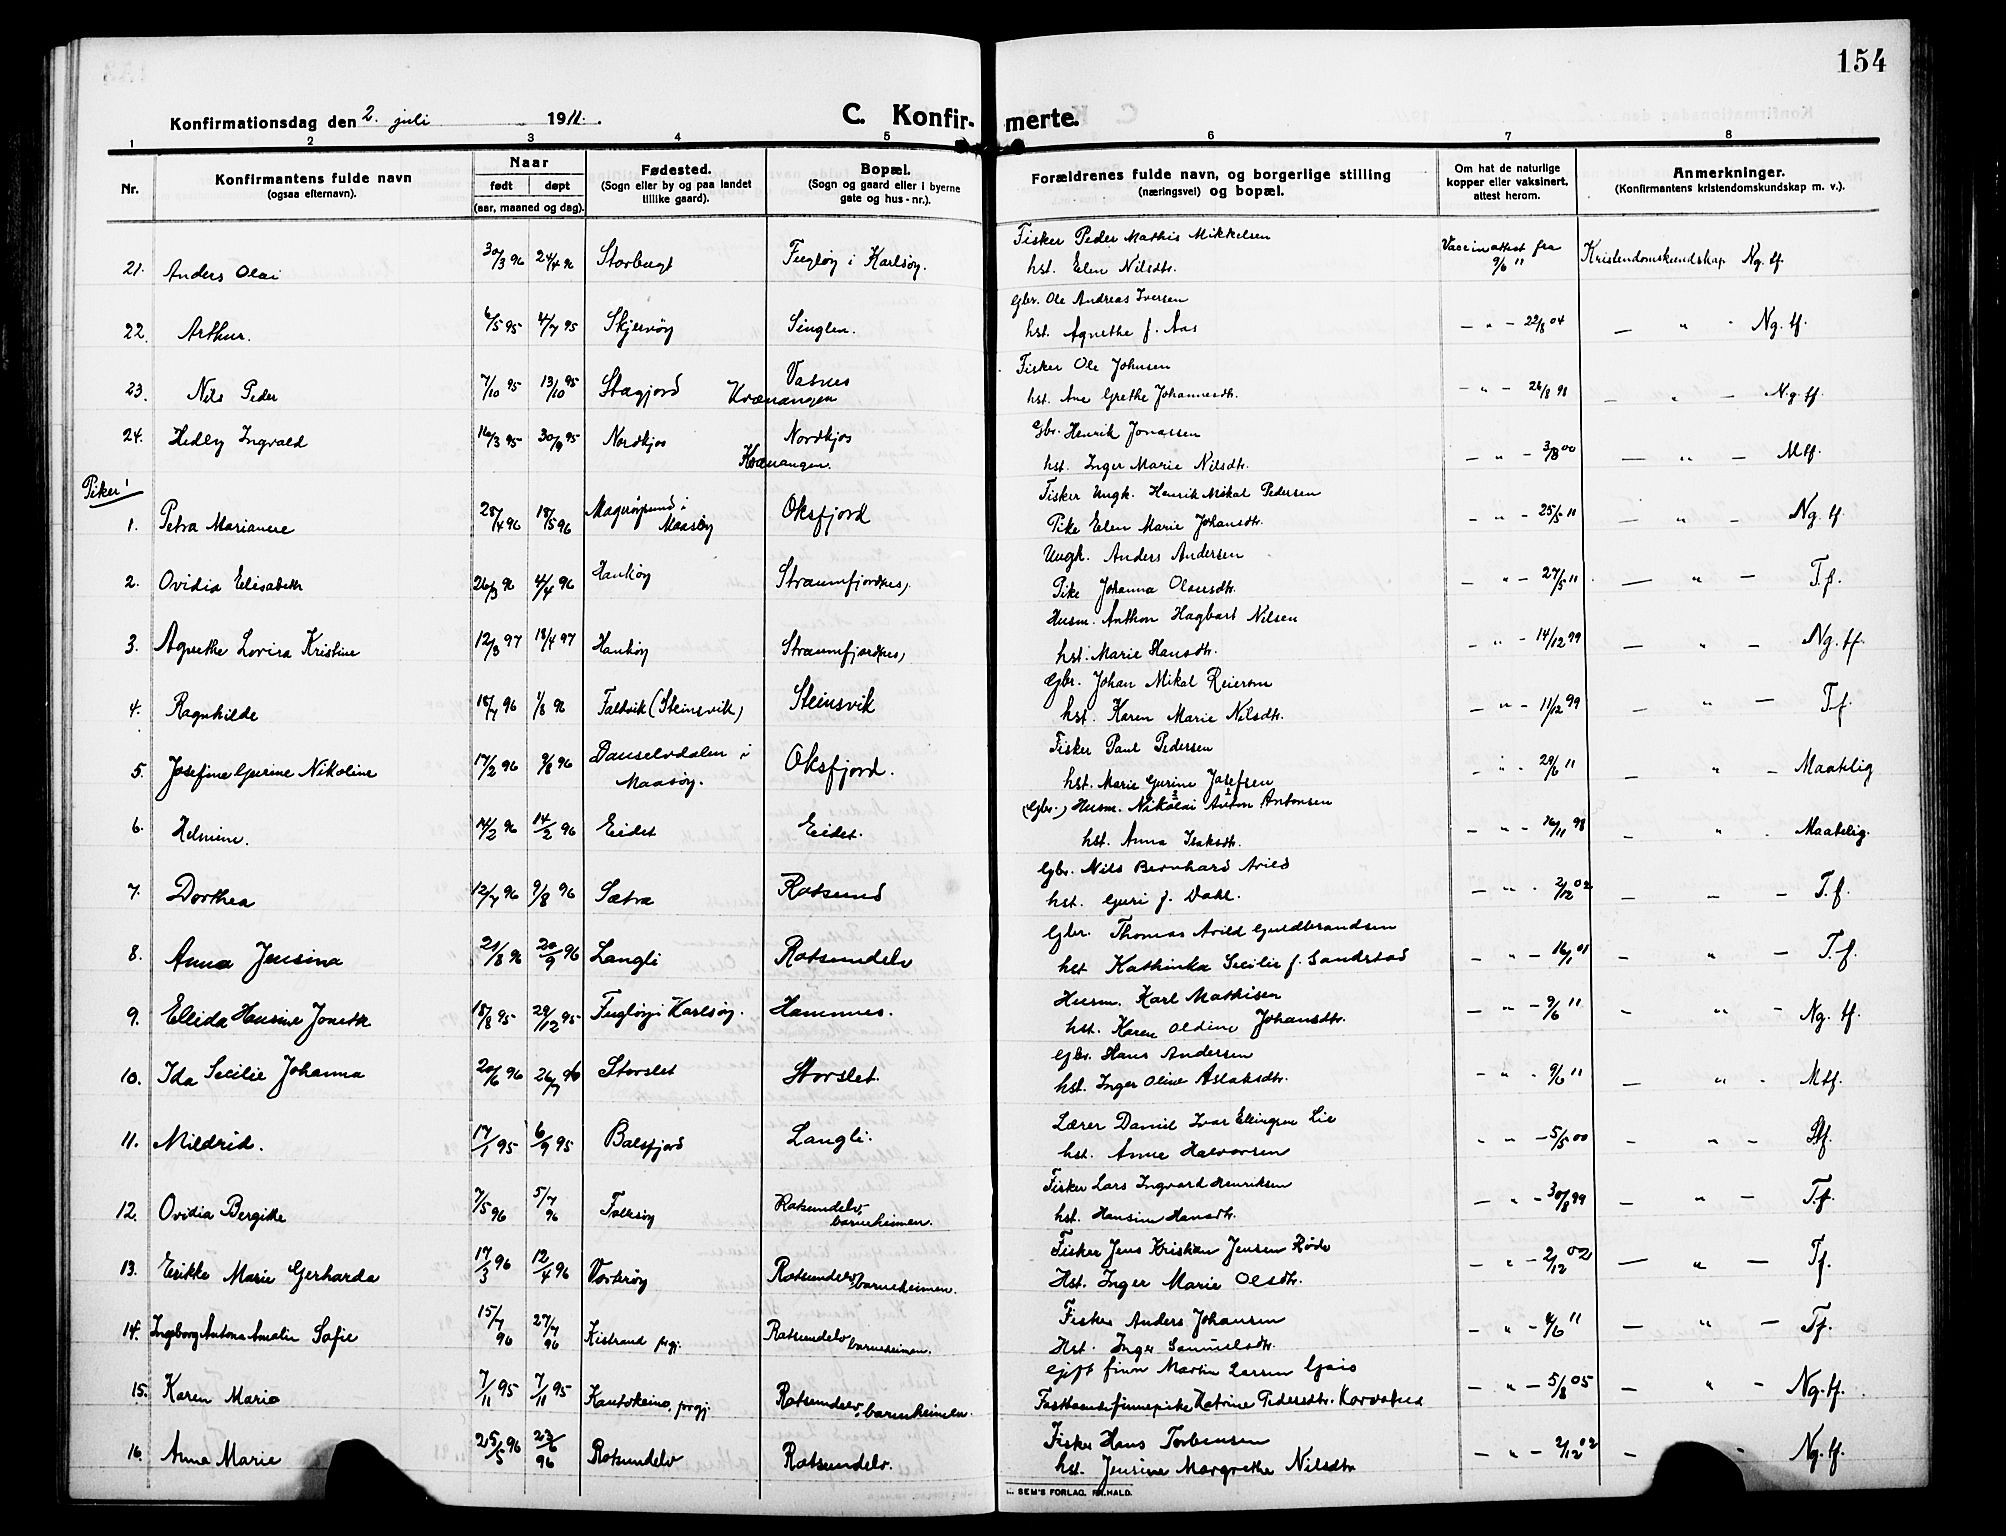 154
Konfirmationsdag den 2. juli 1911.
C. Konfir- merte.
1 2 3 4 5 6 7 8
Nr.
Konfirmantens fulde navn
(ogsaa efternavn).
Naar
født døpt
(aar, maaned og dag).
Fødested.
(Sogn eller by og paa landet
tillike gaard).
Bopæl.
(Sogn og gaard eller i byerne
gate og hus-nr.).
Forældrenes fulde navn, og borgerlige stilling
(næringsvei) og bopæl.
Om hat de naturlige
kopper eller vaksinert,
attest herom.
Anmerkninger.
(Konfirmantens kristendomskundskap m. v.).
21. Anders Olai 30/3 96 24/4 96 Storbugt Fugløy i Karlsøy. Fisker Peder Mathis Mikkelsen
hst. Elen Nilsdtr. Vaccinattest fra 9/6 11 Kristendomskundskap Ng. tf.
22. Arthur. 6/5 95 4/7 95 Skjervøy Singlen. Gbr. Ole Andreas Iversen
hst. Agnethe f. Aas — " — 22/8 04 — " - Ng. tf.
23. Nils Peder 7/10 95 13/10 95 Stagjord Vasnes
Kvænangen Fisker Ole Johnsen
hst. Ane Grethe Johannesdtr. — " — 26/8 98 — " — Ng. tf.
24. Hedley Ingvald 16/3 95 30/9 95 Nordkjos Nordkjos
Kvænangen. Gbr. Henrik Jonassen
hst. Inger Marie Nilsdtr. — " — 3/8 00 — " — Mtf.
Piker!
1. Petra Marianne 28/4 96 18/5 96 Magerøysund i
Maasøy Oksfjord Fisker Ungk. Henrik Mikal Pedersen
Pike Elen Marie Johansdtr. — " — 25/5 11 — " — Ng. tf.
2. Ovidia Elisabeth 26/3 96 4/4 96 Haukøy Straumfjordnes, Ungk. Anders Andersen
Pike Johanna Olausdtr. — " — 27/5 11 — " — T.f.
3. Agnethe Lovisa Kristine 12/3 97 18/4 97 Haukøy Straumfjordnes, Husm. Anthon Hagbart Nilsen
hst. Marie Hansdtr. — " — 14/12 99 — " — Ng. tf.
4. Ragnhilde 18/7 96 1/8 96 Taldvik (Steinsvik) Steinsvik Gbr. Johan Mikal Reiersen
hst. Karen Marie Nilsdtr. — " — 11/12 99 — " — T.f.
5. Josefine Gurine Nikoline 17/2 96 9/8 96 i
Maasøy. Oksfjord. Fisker Paul Pedersen
hst. Marie Gurine Josefsen — " — 29/6 11 — " — Maatelig
6. Helmine. 14/2 96 14/2 96 Eidet Eidet. (Gbr.) Husm. Nikolai Anton Antonsen
hst. Anna Isaksdtr. — " — 16/11 98 — " - Maatelig.
7. Dorthea 12/7 96 9/8 96 Sætra Rotsund Gbr. Nils Bernhard Arild
hst. Guri f. Dahl. — " — 2/12 02 — " — T.f.
8. Anna Jensina 21/8 96 20/9 96 Langli Rotsundelv Gbr. Thomas Arild Guldbrandsen
hst Kathinka Secilie f. Sandstad — " — 16/1 01 — " — T.f.
9. Ellida Hansine Jonette 18/8 95 29/12 95 Fugløy i Karlsøy. Hamnnes. Husm. Karl Mathisen
hst. Karen Oldine Johansdtr. — " — 9/6 11 — " — Ng. tf.
10. Ida Secilie Johanna 20/6 96 26/7 96 Storslet Storslet. Gbr. Hans Andersen
hst. Inger Oline Aslaksdtr. — " - 9/6 11 — " - Mtf.
11. Mildrid. 17/7 95 6/9 95 Balsfjord Langli. Lærer Daniel Ivar Ellingsen Lie
hst. Anne Halvorsen " " — 5/5 00 — " — Stf.
12. Ovidia Bergitte 7/5 96 5/7 96 Rotsundelv,
barneheimen. Fisker Lars Ingvard Henriksen
hst. Hansine Hansdtr. — " — 30/8 99 — " — T.f.
13. Erikke Marie Gerharda 17/3 96 12/4 96 Vorterøy Rotsundelv,
barneheimen. Fisker Jens Kristian Jensen Røde
Hst. Inger Marie Olsdtr. — " — 2/12 02 — " — Tf.
14. Ingeborg Antona Amalie Sofie 15/7 96 27/7 96 Kistrand prgj. Rotsundelv
barneheimen. Fisker Anders Johansen
Hst. Inger Samuelsdtr. — " — 4/6 11 — " — Tf.
15. Karen Marie 7/11 95 7/11 95 Kautokeino, prgj. Rotsundelv, barneheimen. Gift finn Martin Larsen Gjais
Fastboende finnepike Katrine Pedersdtr. — " — 5/8 05 — " — Ng. tf.
16. Anna Marie 25/5 96 23/6 96 Rotsundelv Rotsundelv. Fisker Hans Torbensen
hst. Jensine Margrethe Nilsdtr — " — 2/12 02 — " Ng. tf.
SEM'S FORLAG, FR.HALD.